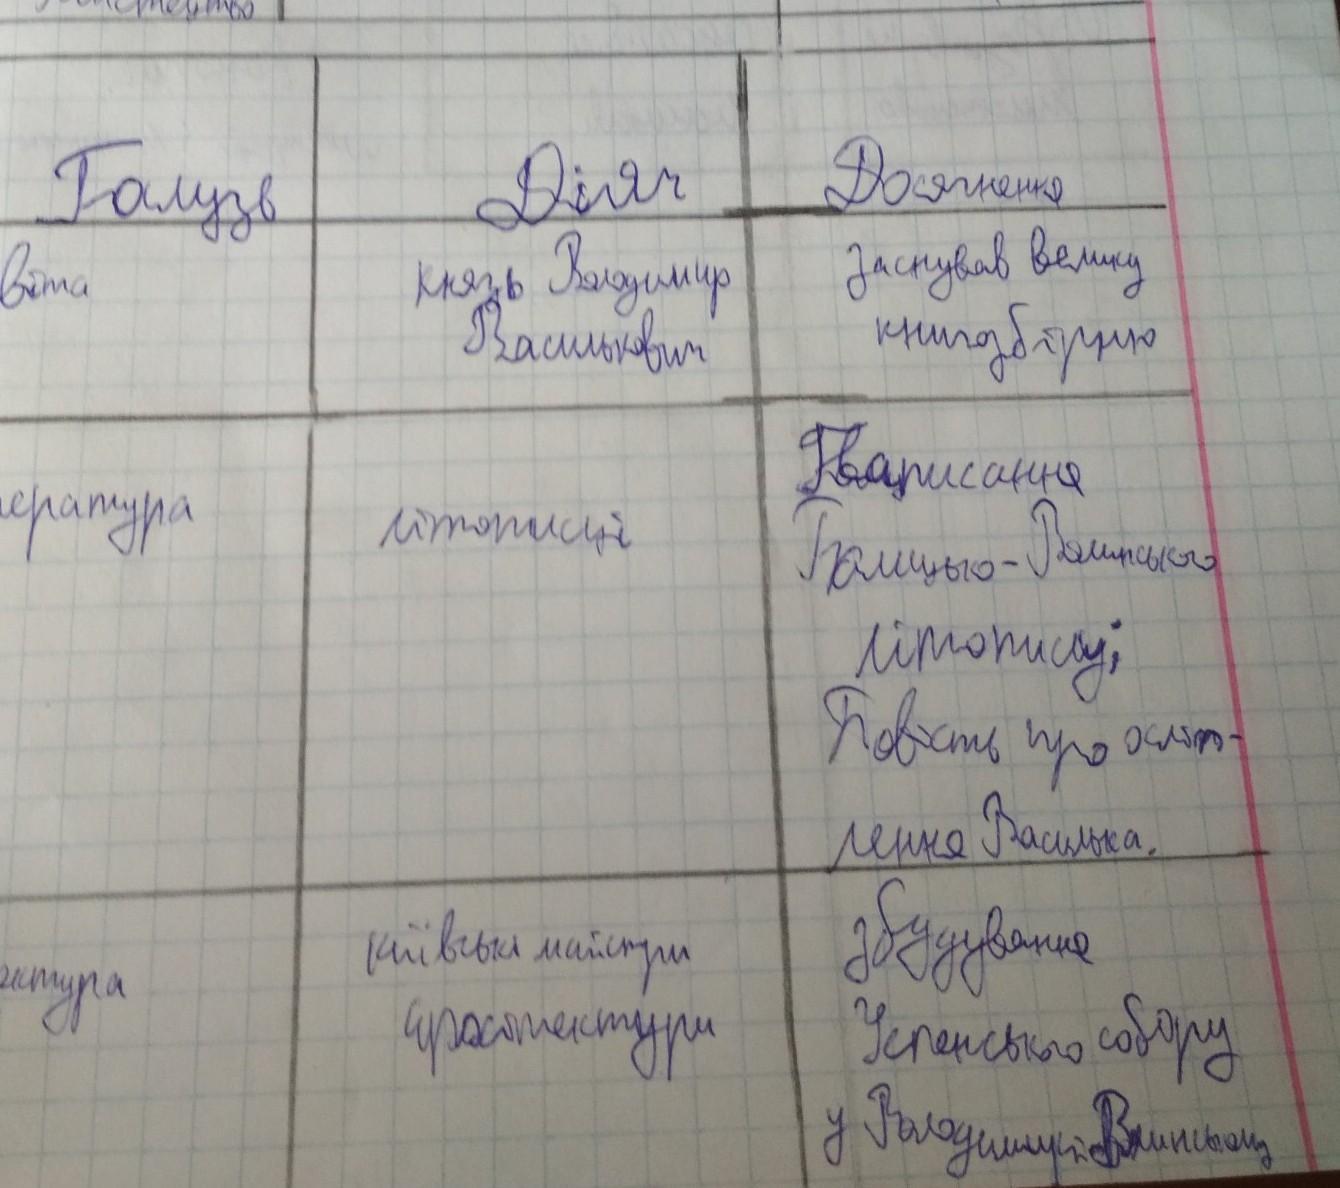 Галузь Діяч Досягнення
віта князь Володимир заснував велику
Василькович книгозбірню
Написання
ература літописці Галицько-Волинського
літопису;
Повість про осліп-
лення Василька.
київські майстри збудування
ктура архітектури Успенського собору
у Володимирі-Волинському